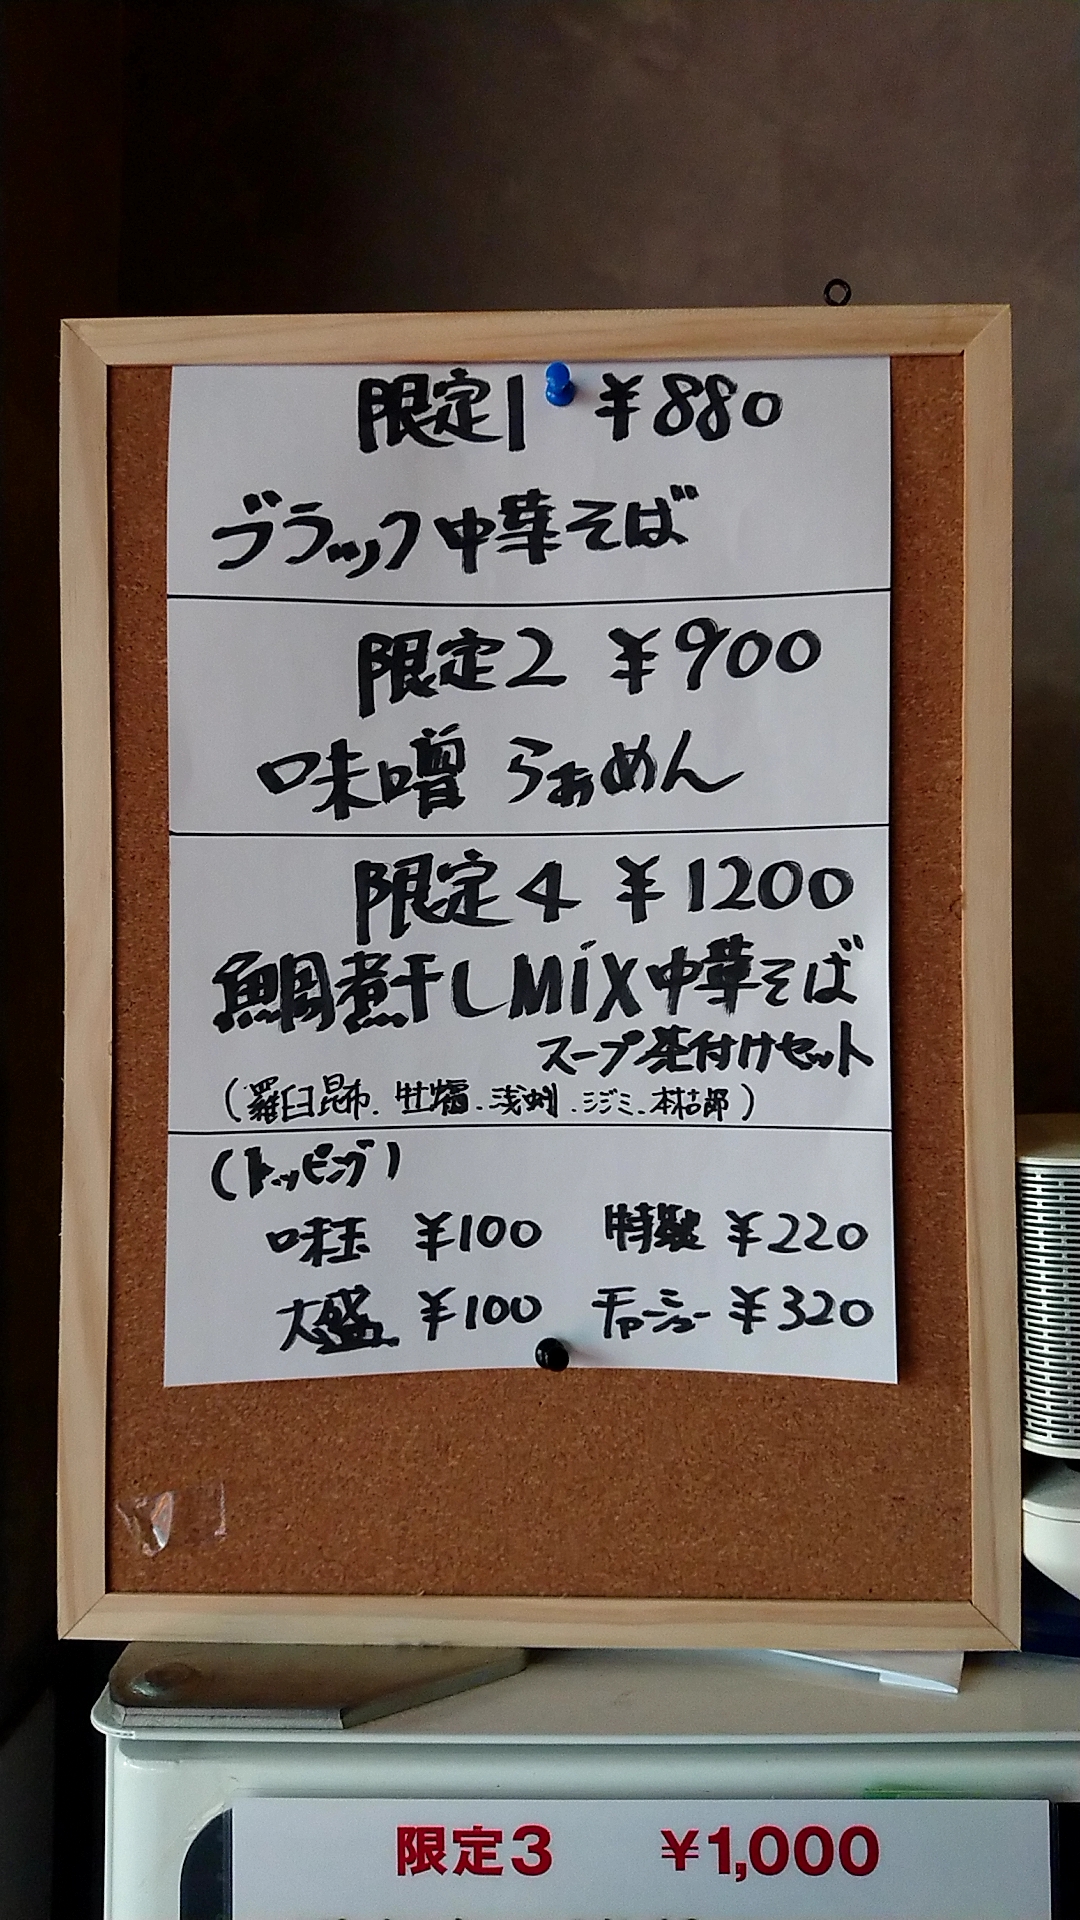 限定1 ¥880
ブラック中華そば
限定2 ¥900
味噌らぁめん
限定4 ¥1200
鯛煮干しMiX中華そば
スープ茶付けセット
(羅臼昆布、牡蠣、浅蜊、シジミ、本枯節)
(トッピング)
味玉 ¥100 特製 ¥220
大盛 ¥100 チャーシュー ¥320
限定3 ¥1,000